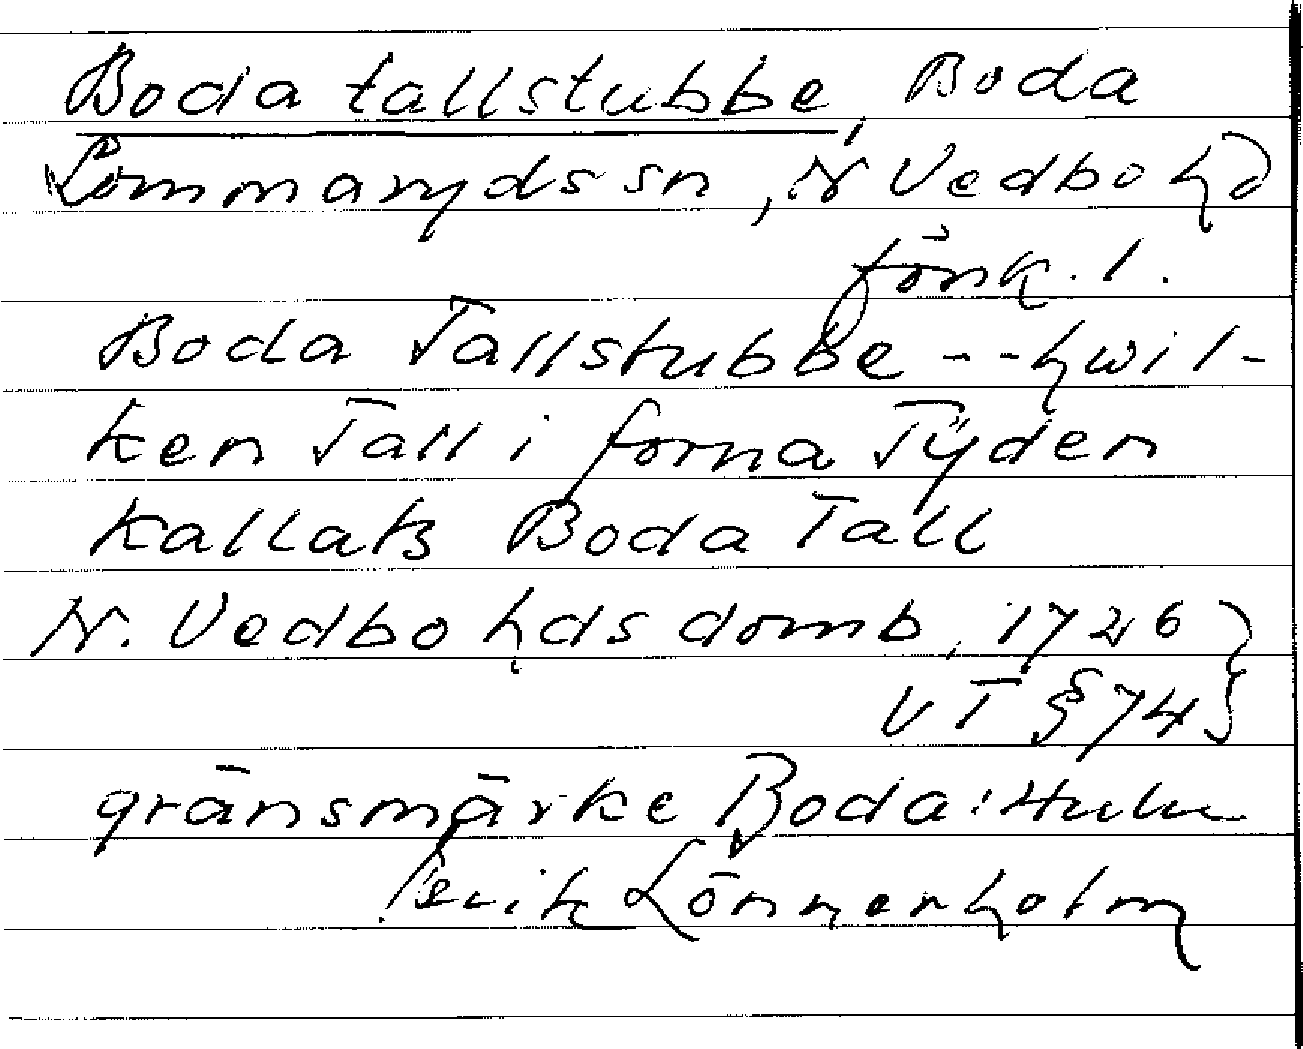 Boda tallstubbe, Boda
Lommaryds sn, N Vedbo hd
Jönk. l.
Boda Tallstubbe --hwil-
ken Tall i forna Tÿden
kallats Boda Tall
N. Vedbo hds domb, 1726
VT § 74
gränsmärke Boda:
Lönnerholm